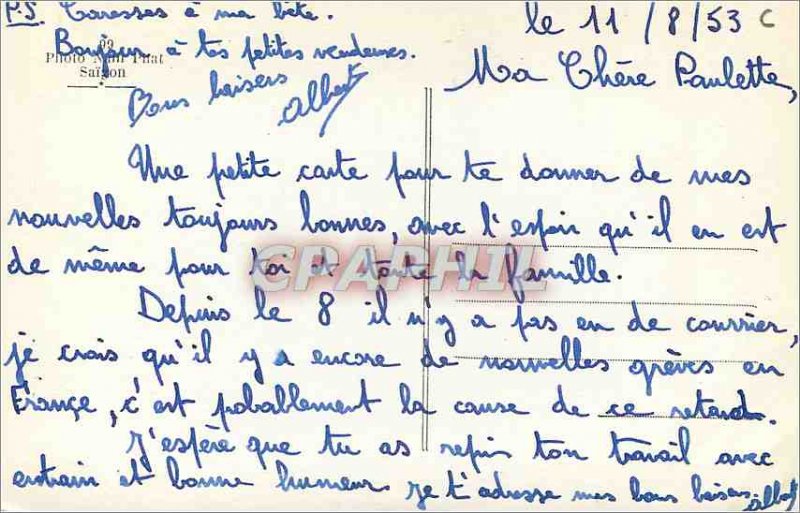 P.S Caresses à ma bête.
Bonjour à tes petites vendeuses.
99
Photo Nam Phat
Saïgon
Bons baisers
Albert
le 11/8/53
Ma Chère Paulette,
Une petite carte pour te donner de mes
nouvelles toujours bonnes, avec l'espoir qu'il en est
de même pour toi et toute la famille.
CPAPHIL
Depuis le 8 il n'y a pas eu de courrier,
je crois qu'il y a encore de nouvelles grèves en
France, c'est probablement la cause de ce retard.
J'espère que tu as repris ton travail avec
entrain et bonne humeur. Je t'adresse mes bons baisers Albert